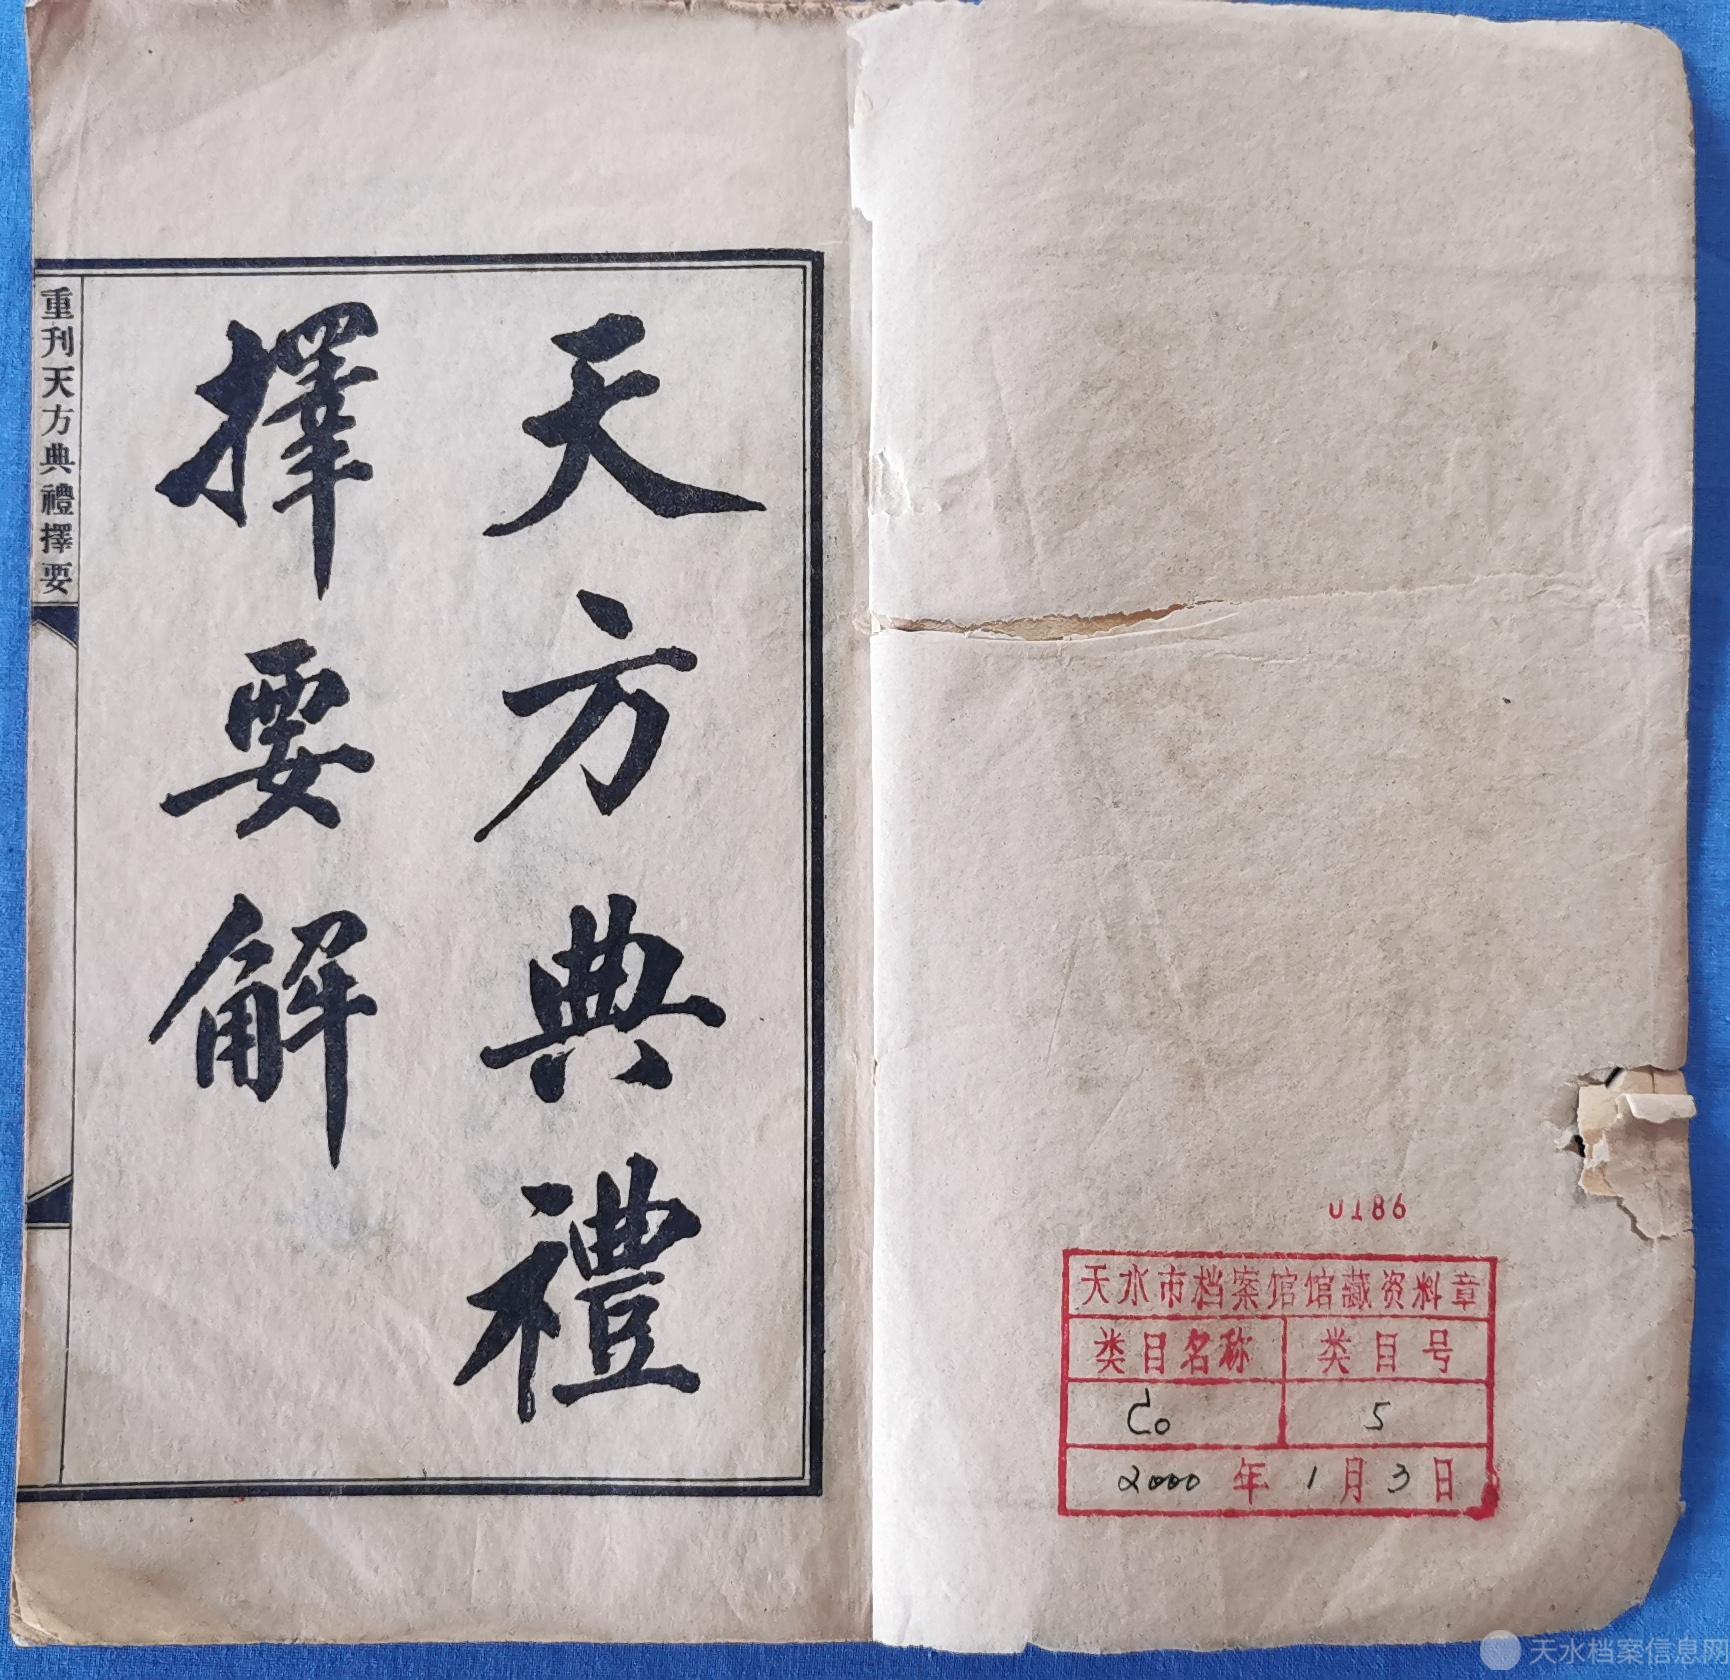 天方典禮
擇要解
重刊天方典禮擇要
0186
天水市档案馆馆藏资料章
类目名称 类目号
5
2000年1月3日
天水档案信息网